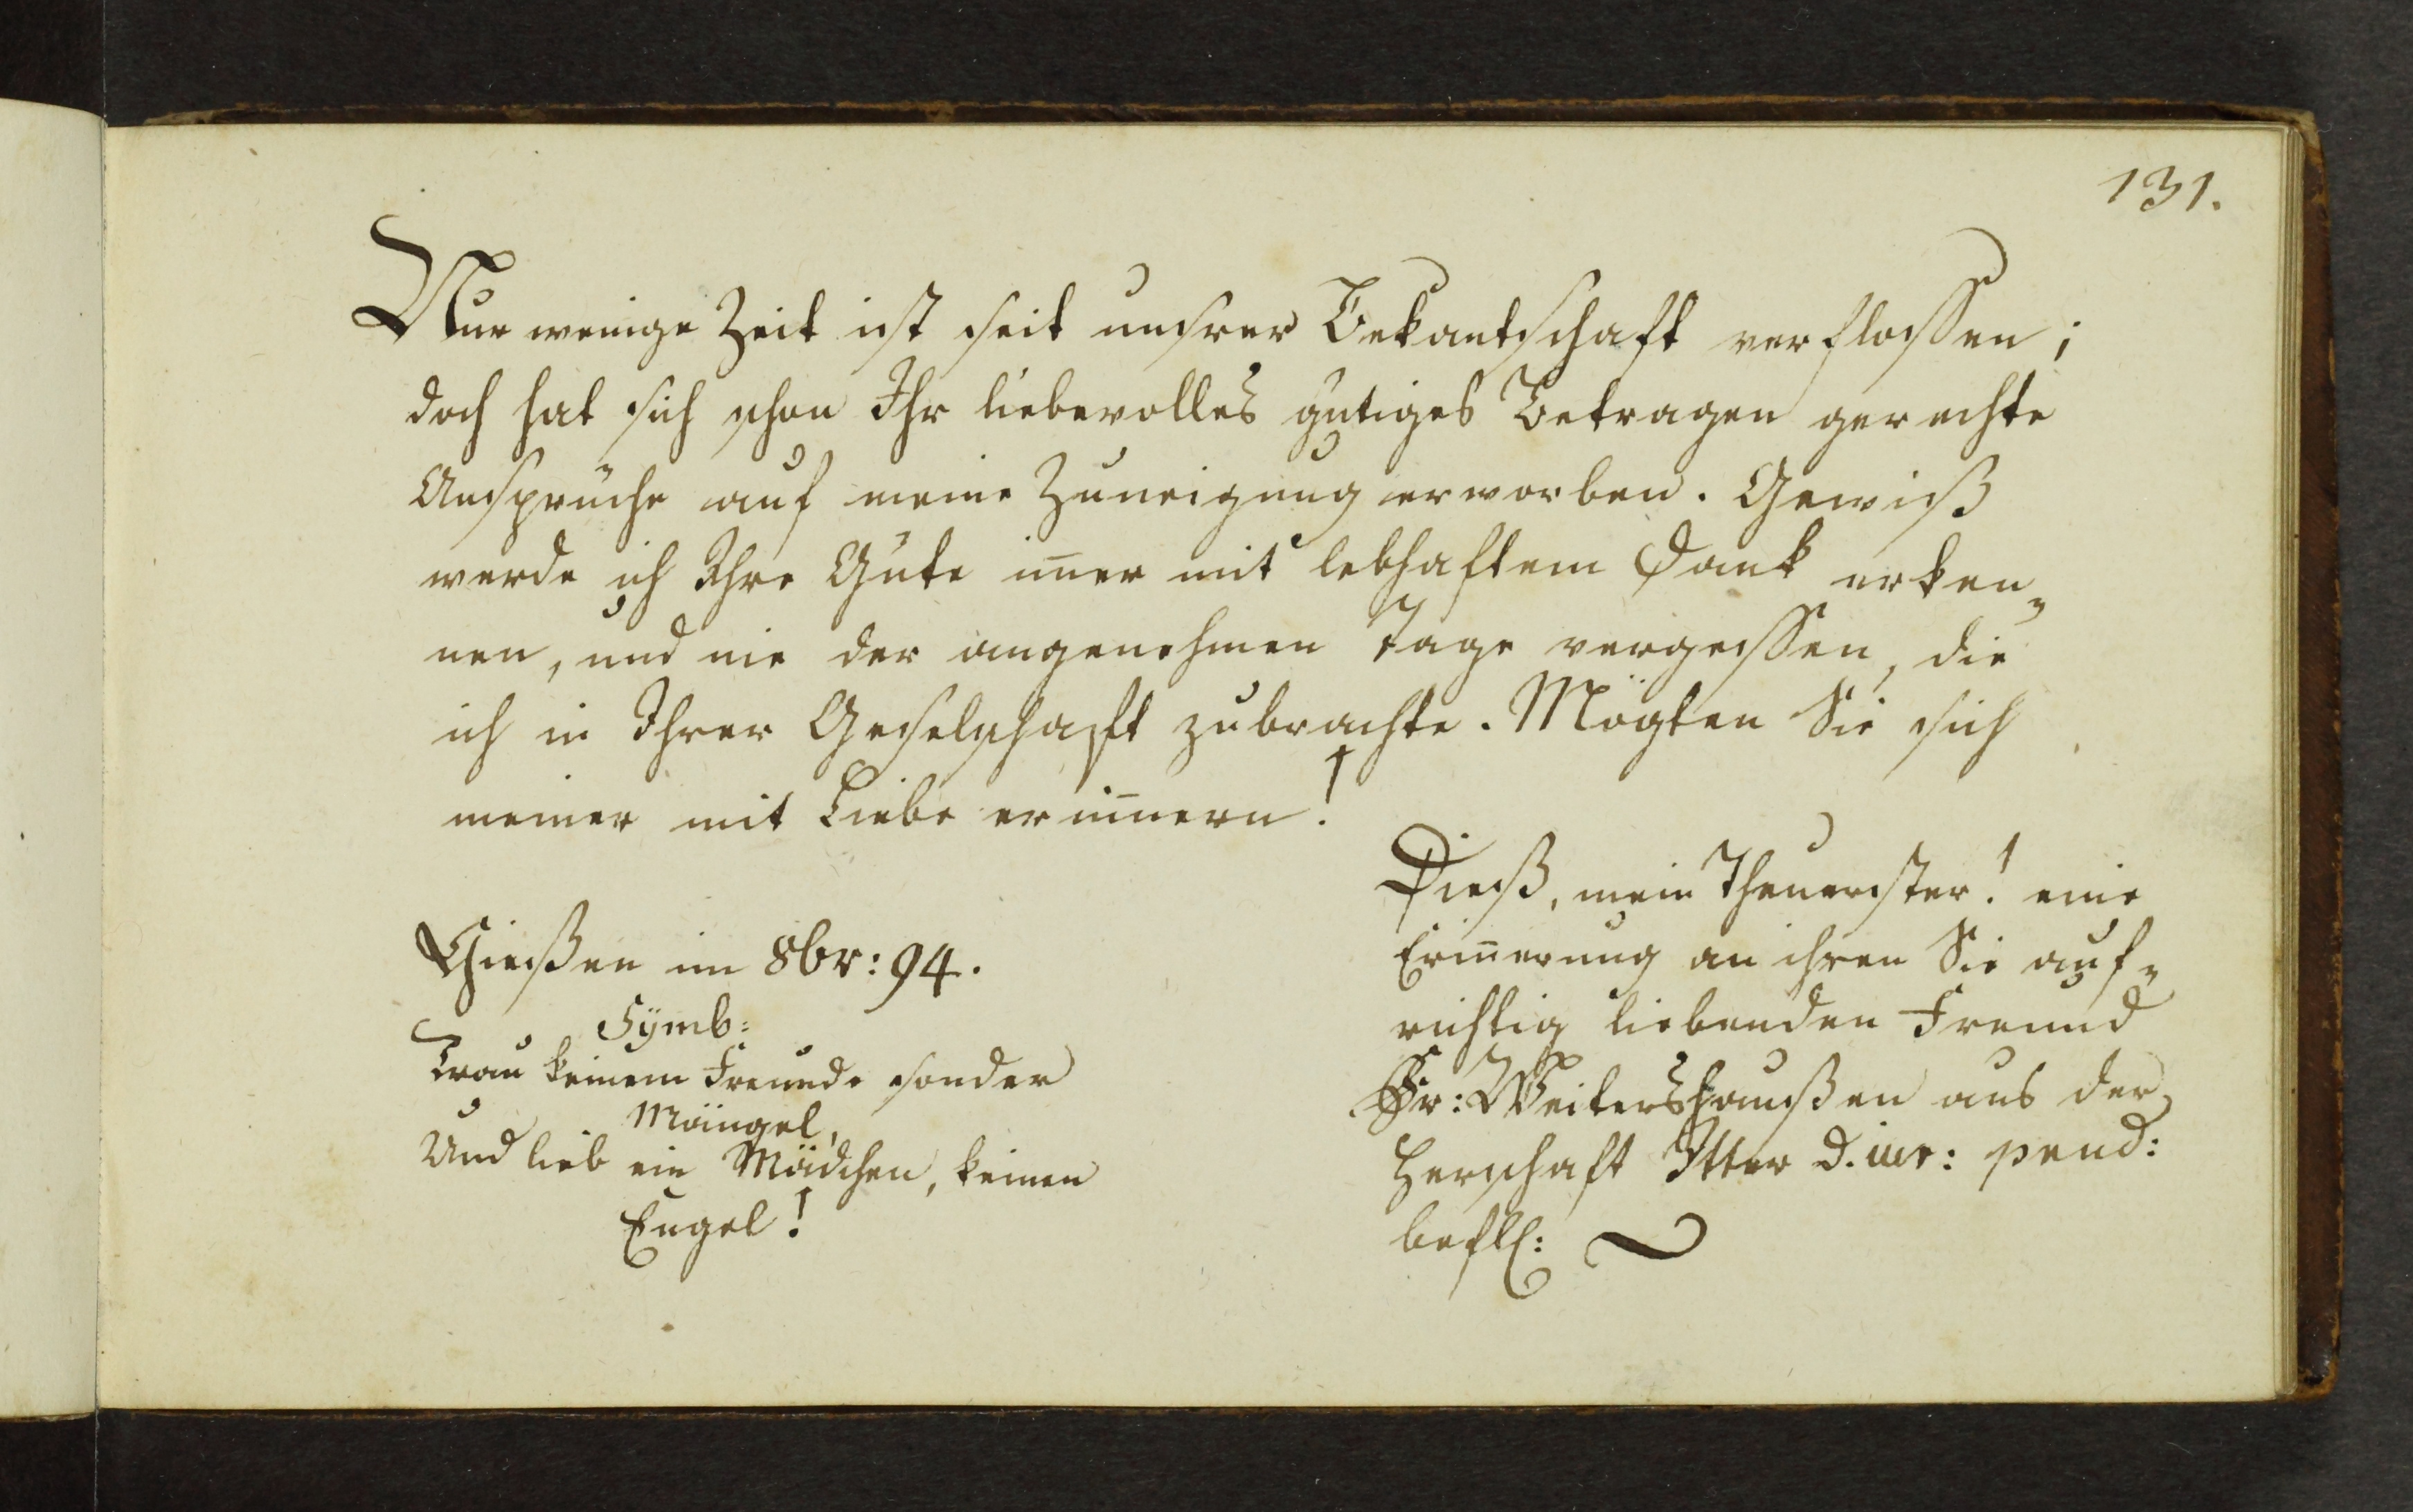 131.
Nur wenige Zeit ist seit unsrer Bekantschaft verflossen;
doch hat sich schon Ihr liebevolles gütiges Betragen gerechte
Ansprüche auf meine Zuneigung erworben. Gewiß
werde ich Ihre Güte im̅er mit lebhaftem Dank erken„
nen, und nie der angenehmen Tage vergessen, die
ich in Ihrer Geselschaft zubrachte. Mögten Sie sich
meiner mit Liebe erin̅nern!
Gießen im 8br: 94.
Symb:
Trau keinem Freunde sonder
Mängel,
Und lieb ein Mädchen, keinen
Engel!
Dieß, mein Theuerster! eine
Erin̅erung an ihren Sie auf„
richtig liebenden Freund
Fr: Weitershaußen aus der
Herschaft Itter d. iur: pend:
befl: